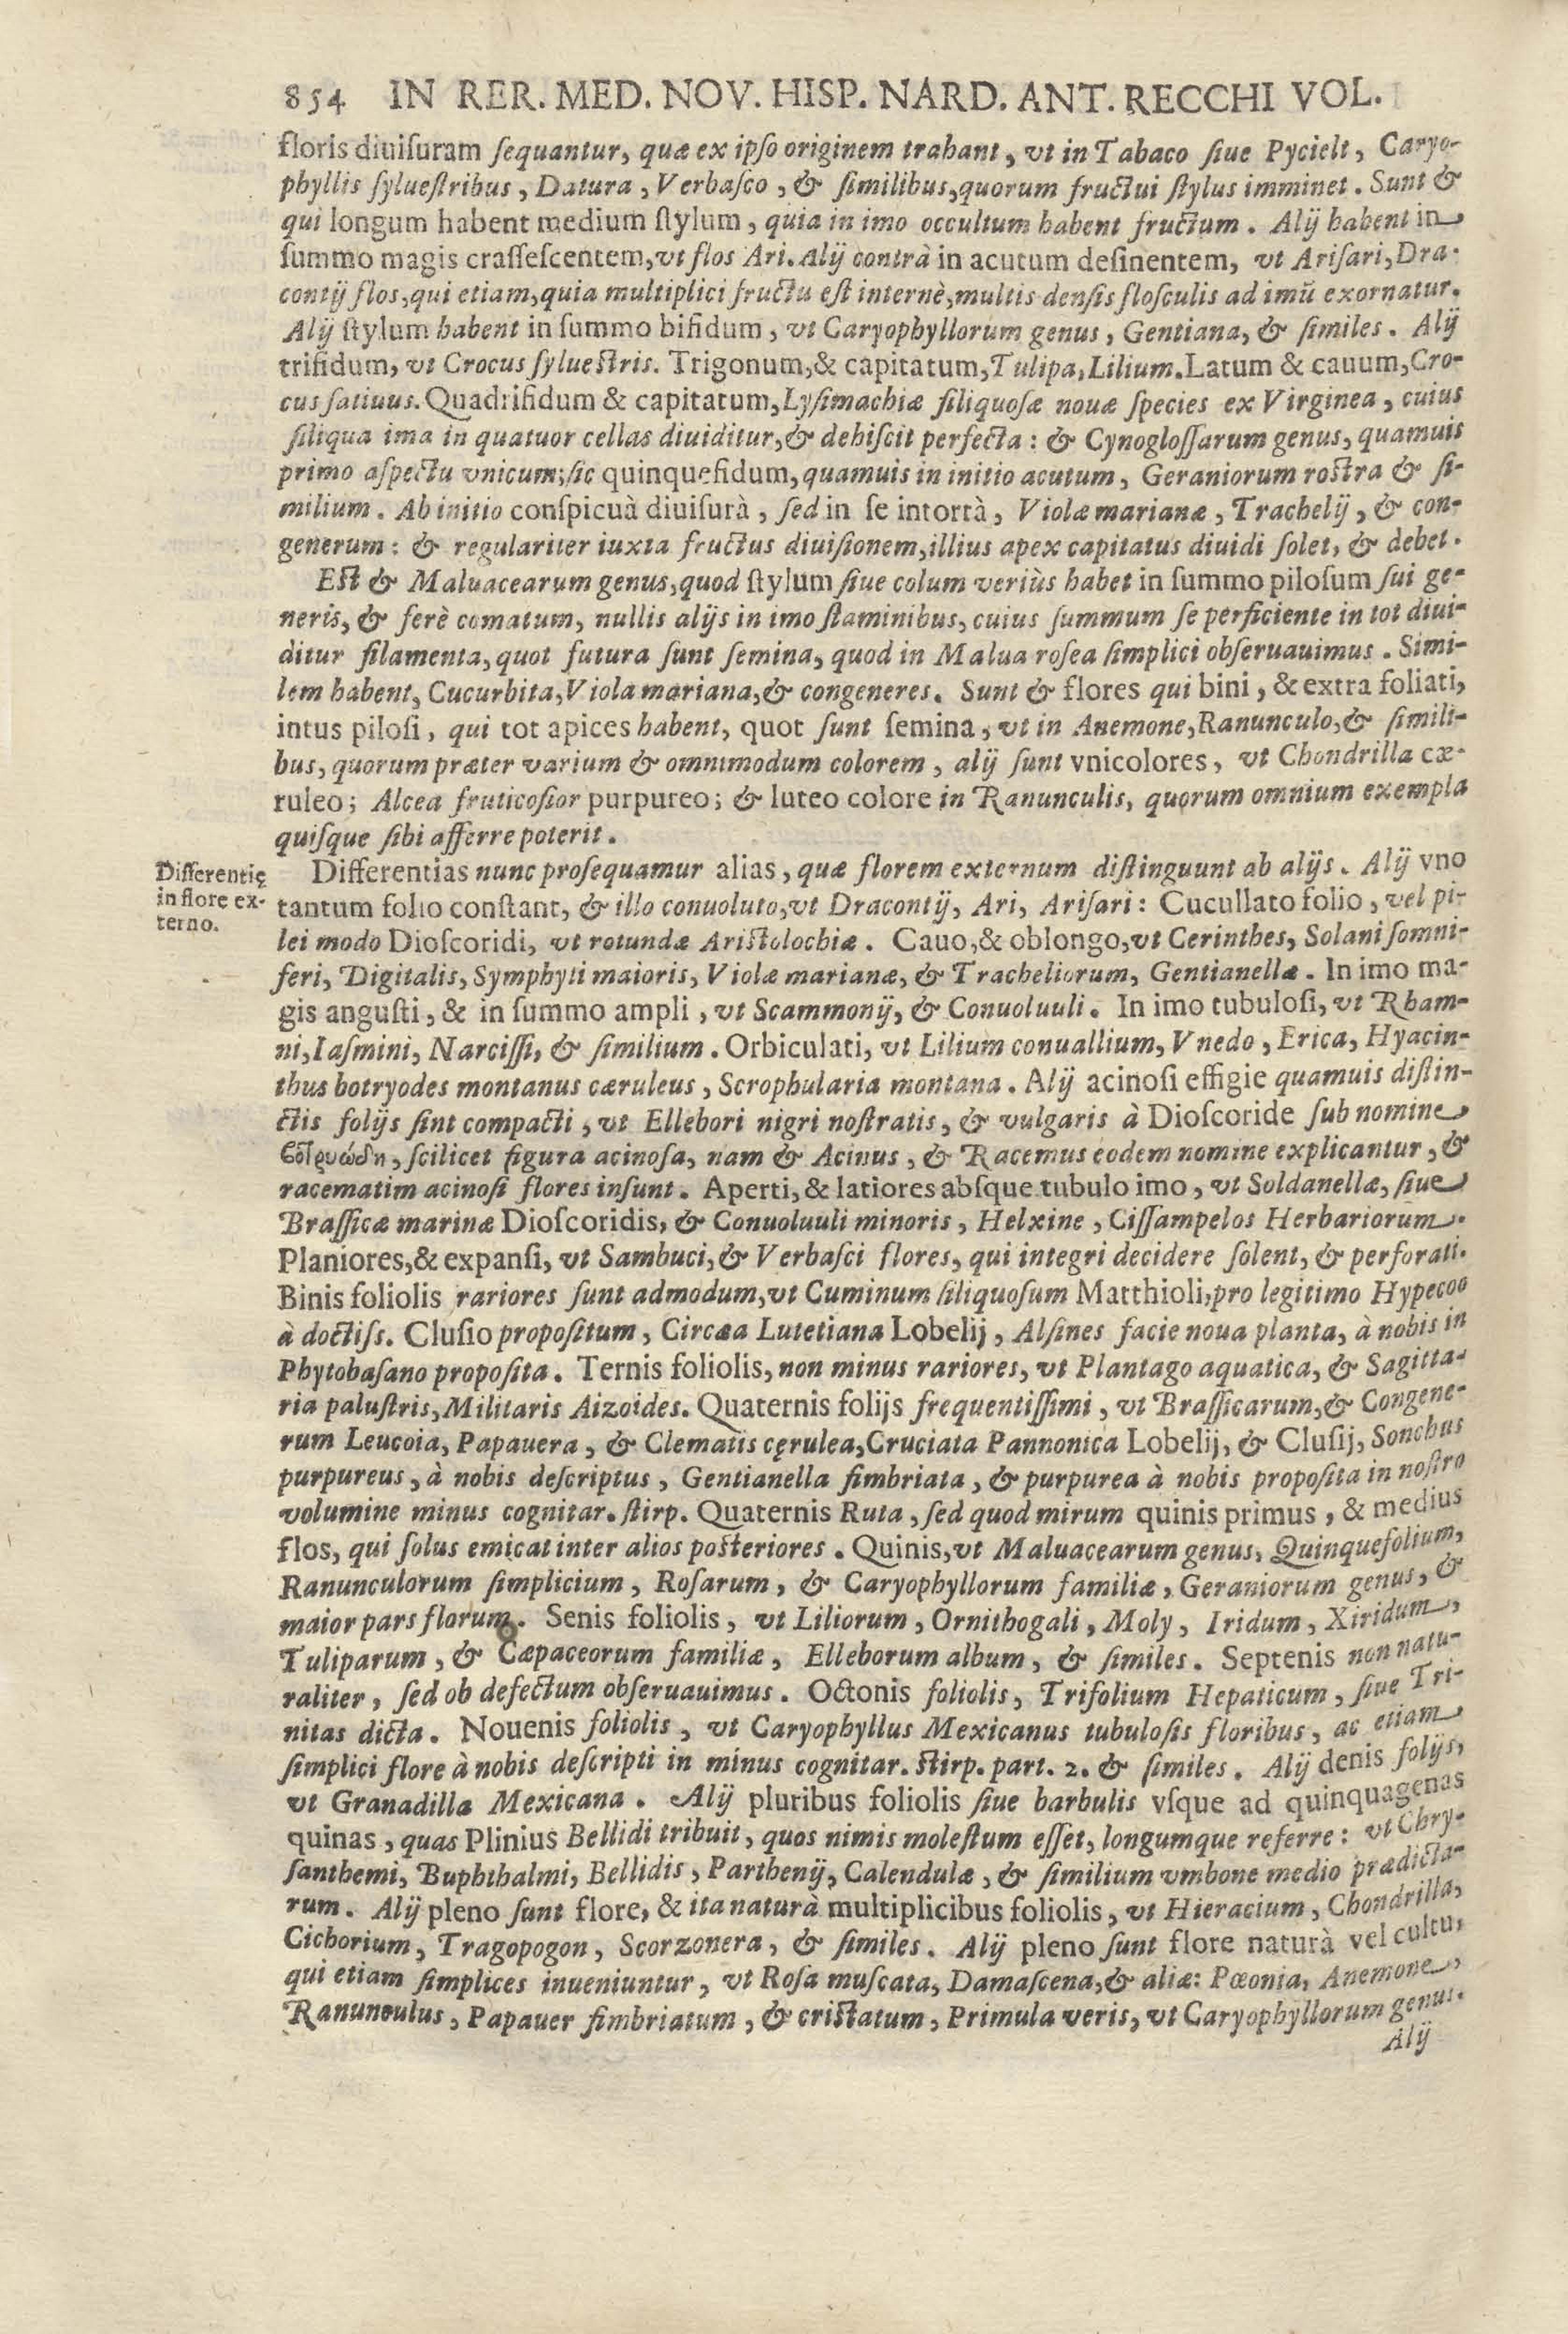 854 IN RER. MED. NOV. HISP. NARD. ANT. RECCHI VOL.
floris diuiſuram ſequantur, quæ ex ipſo originem trahant, vt in Tabaco ſiue Pycielt, Caryo-
phyllis ſylueſtribus, Datura, Verbaſco, & ſimilibus, quorum fructui ſtylus imminet. Sunt &
qui longum habent medium ſtylum, quia in imo occultum habent fructum. Alij habent in
ſummo magis craſſeſcentem, vt flos Ari. Alij contrà in acutum deſinentem, vt Ariſari, Dra-
contij flos, qui etiam, quia multiplici fructu eſt internè, multis denſis floſculis ad imũ exornatur.
Alij ſtylum habent in ſummo bifidum, vt Caryophyllorum genus, Gentiana, & ſimiles. Alij
trifidum, vt Crocus ſylueſtris. Trigonum, & capitatum, Tulipa, Lilium. Latum & cauum, Cro-
cus ſatiuus. Quadrifidum & capitatum, Lyſimachiæ ſiliquoſæ nouæ ſpecies ex Virginea, cuius
ſiliqua ima in quatuor cellas diuiditur, & dehiſcit perfecta: & Cynogloſſarum genus, quamuis
primo aſpectu vnicum; ſic quinquefidum, quamuis in initio acutum, Geraniorum roſtra & ſi-
milium. Ab initio conſpicuà diuiſurà, ſed in ſe intortà, Violæ marianæ, Trachelij, & con-
generum: & regulariter iuxta fructus diuiſionem, illius apex capitatus diuidi ſolet, & debet.
Eſt & Maluacearum genus, quod ſtylum ſiue colum veriùs habet in ſummo piloſum ſui ge-
neris, & ferè comatum, nullis alijs in imo ſtaminibus, cuius ſummum ſe perficiente in tot diui-
ditur filamenta, quot futura ſunt ſemina, quod in Malua roſea ſimplici obſeruauimus. Simi-
lem habent, Cucurbita, Viola mariana, & congeneres. Sunt & flores qui bini, & extra foliati,
intus piloſi, qui tot apices habent, quot ſunt ſemina, vt in Anemone, Ranunculo, & ſimili-
bus, quorum præter varium & omnimodum colorem, alij ſunt vnicolores, vt Chondrilla cæ-
ruleo; Alcea fruticoſior purpureo; & luteo colore in Ranunculis, quorum omnium exempla
quiſque ſibi afferre poterit.
Differentię
in flore ex-
terno.
Differentias nunc proſequamur alias, quæ florem externum diſtinguunt ab alijs. Alij vno
tantum folio conſtant, & illo conuoluto, vt Dracontij, Ari, Ariſari: Cucullato folio, vel pi-
lei modo Dioſcoridi, vt rotundæ Ariſtolochiæ. Cauo, & oblongo, vt Cerinthes, Solani ſomni-
feri, Digitalis, Symphyti maioris, Violæ marianæ, & Tracheliorum, Gentianellæ. In imo ma-
gis anguſti, & in ſummo ampli, vt Scammonij, & Conuoluuli. In imo tubuloſi, vt Rham-
ni, Iaſmini, Narciſſi, & ſimilium. Orbiculati, vt Lilium conuallium, Vnedo, Erica, Hyacin-
thus botryodes montanus cæruleus, Scrophularia montana. Alij acinoſi effigie quamuis diſtin-
ctis folijs ſint compacti, vt Ellebori nigri noſtratis, & vulgaris à Dioſcoride ſub nomine
βοτρυώδη, ſcilicet figura acinoſa, nam & Acinus, & Racemus eodem nomine explicantur, &
racematim acinoſi flores inſunt. Aperti, & latiores abſque tubulo imo, vt Soldanellæ, ſiue
Braſſicæ marinæ Dioſcoridis, & Conuoluuli minoris, Helxine, Ciſſampelos Herbariorum.
Planiores, & expanſi, vt Sambuci, & Verbaſci flores, qui integri decidere ſolent, & perforati.
Binis foliolis rariores ſunt admodum, vt Cuminum ſiliquoſum Matthioli, pro legitimo Hypecoo
à doctiſs. Cluſio propoſitum, Circæa Lutetiana Lobelij, Alſines facie noua planta, à nobis in
Phytobaſano propoſita. Ternis foliolis, non minus rariores, vt Plantago aquatica, & Sagitta-
ria paluſtris, Militaris Aizoides. Quaternis folijs frequentiſſimi, vt Braſſicarum, & Congene-
rum Leucoia, Papauera, & Clematis cęrulea, Cruciata Pannonica Lobelij, & Cluſij, Sonchus
purpureus, à nobis deſcriptus, Gentianella fimbriata, & purpurea à nobis propoſita in noſtro
volumine minus cognitar. ſtirp. Quaternis Ruta, ſed quod mirum quinis primus, & medius
flos, qui ſolus emicat inter alios poſteriores. Quinis, vt Maluacearum genus, Quinquefolium,
Ranunculorum ſimplicium, Roſarum, & Caryophyllorum familiæ, Geraniorum genus, &
maior pars florum. Senis foliolis, vt Liliorum, Ornithogali, Moly, Iridum, Xiridum,
Tuliparum, & Cæpaceorum familiæ, Elleborum album, & ſimiles. Septenis non natu-
raliter, ſed ob defectum obſeruauimus. Octonis foliolis, Trifolium Hepaticum, ſiue Tri-
nitas dicta. Nouenis foliolis, vt Caryophyllus Mexicanus tubuloſis floribus, ac etiam
ſimplici flore à nobis deſcripti in minus cognitar. ſtirp. part. 2. & ſimiles. Alij denis folijs,
vt Granadilla Mexicana. Alij pluribus foliolis ſiue barbulis vſque ad quinquagenas
quinas, quas Plinius Bellidi tribuit, quos nimis moleſtum eſſet, longumque referre: vt Chry-
ſanthemi, Buphthalmi, Bellidis, Parthenij, Calendulæ, & ſimilium vmbone medio prædicta-
rum. Alij pleno ſunt flore, & ita naturà multiplicibus foliolis, vt Hieracium, Chondrilla,
Cichorium, Tragopogon, Scorzonera, & ſimiles. Alij pleno ſunt flore naturà vel cultu,
qui etiam ſimplices inueniuntur, vt Roſa muſcata, Damaſcena, & aliæ: Pœonia, Anemone,
Ranunculus, Papauer fimbriatum, & criſtatum, Primula veris, vt Caryophyllorum genus.
Alij